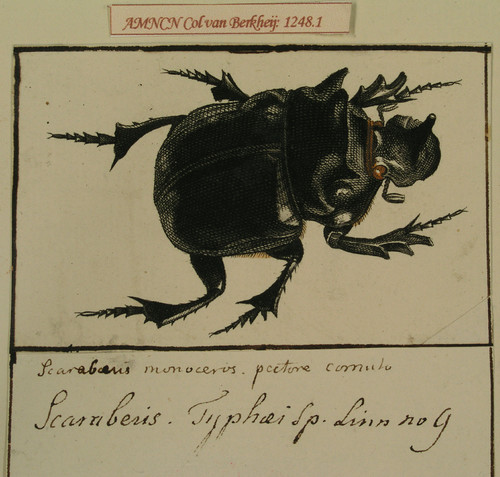 AMNCN Col van Berkheij: 1248.1
Scarabæus monoceros. pectore cornuto
Scaraberis. Typhæi Sp. Linn no 9